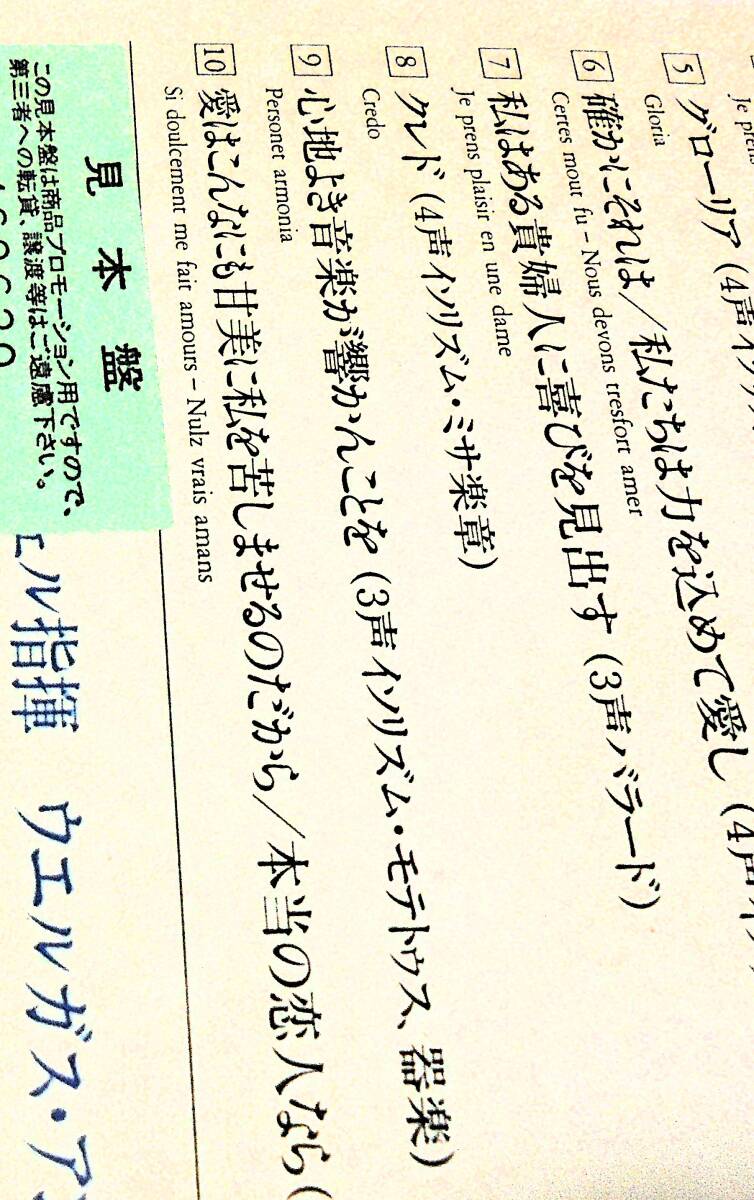 Je prens
5 グローリア (4声イソリ
Gloria
6 確かにそれは／私たちは力を込めて愛し (4声イソ
Certes mout fu – Nous devons tresfort amer
7 私はある貴婦人に喜びを見出す (3声バラード)
Je prens plaisir en une dame
8 クレド (4声イソリズム・ミサ楽章)
Credo
9 心地よき音楽が響かんことを (3声イソリズム・モテトゥス、器楽)
Personet armonia
10 愛はこんなにも甘美に私を苦しませるのだから／本当の恋人なら (
Si doulcement me fait amours – Nulz vrais amans
見本盤
この見本盤は商品プロモーション用ですので、
第三者への転貸、譲渡等はご遠慮下さい。
エル指揮 ウエルガス・ア